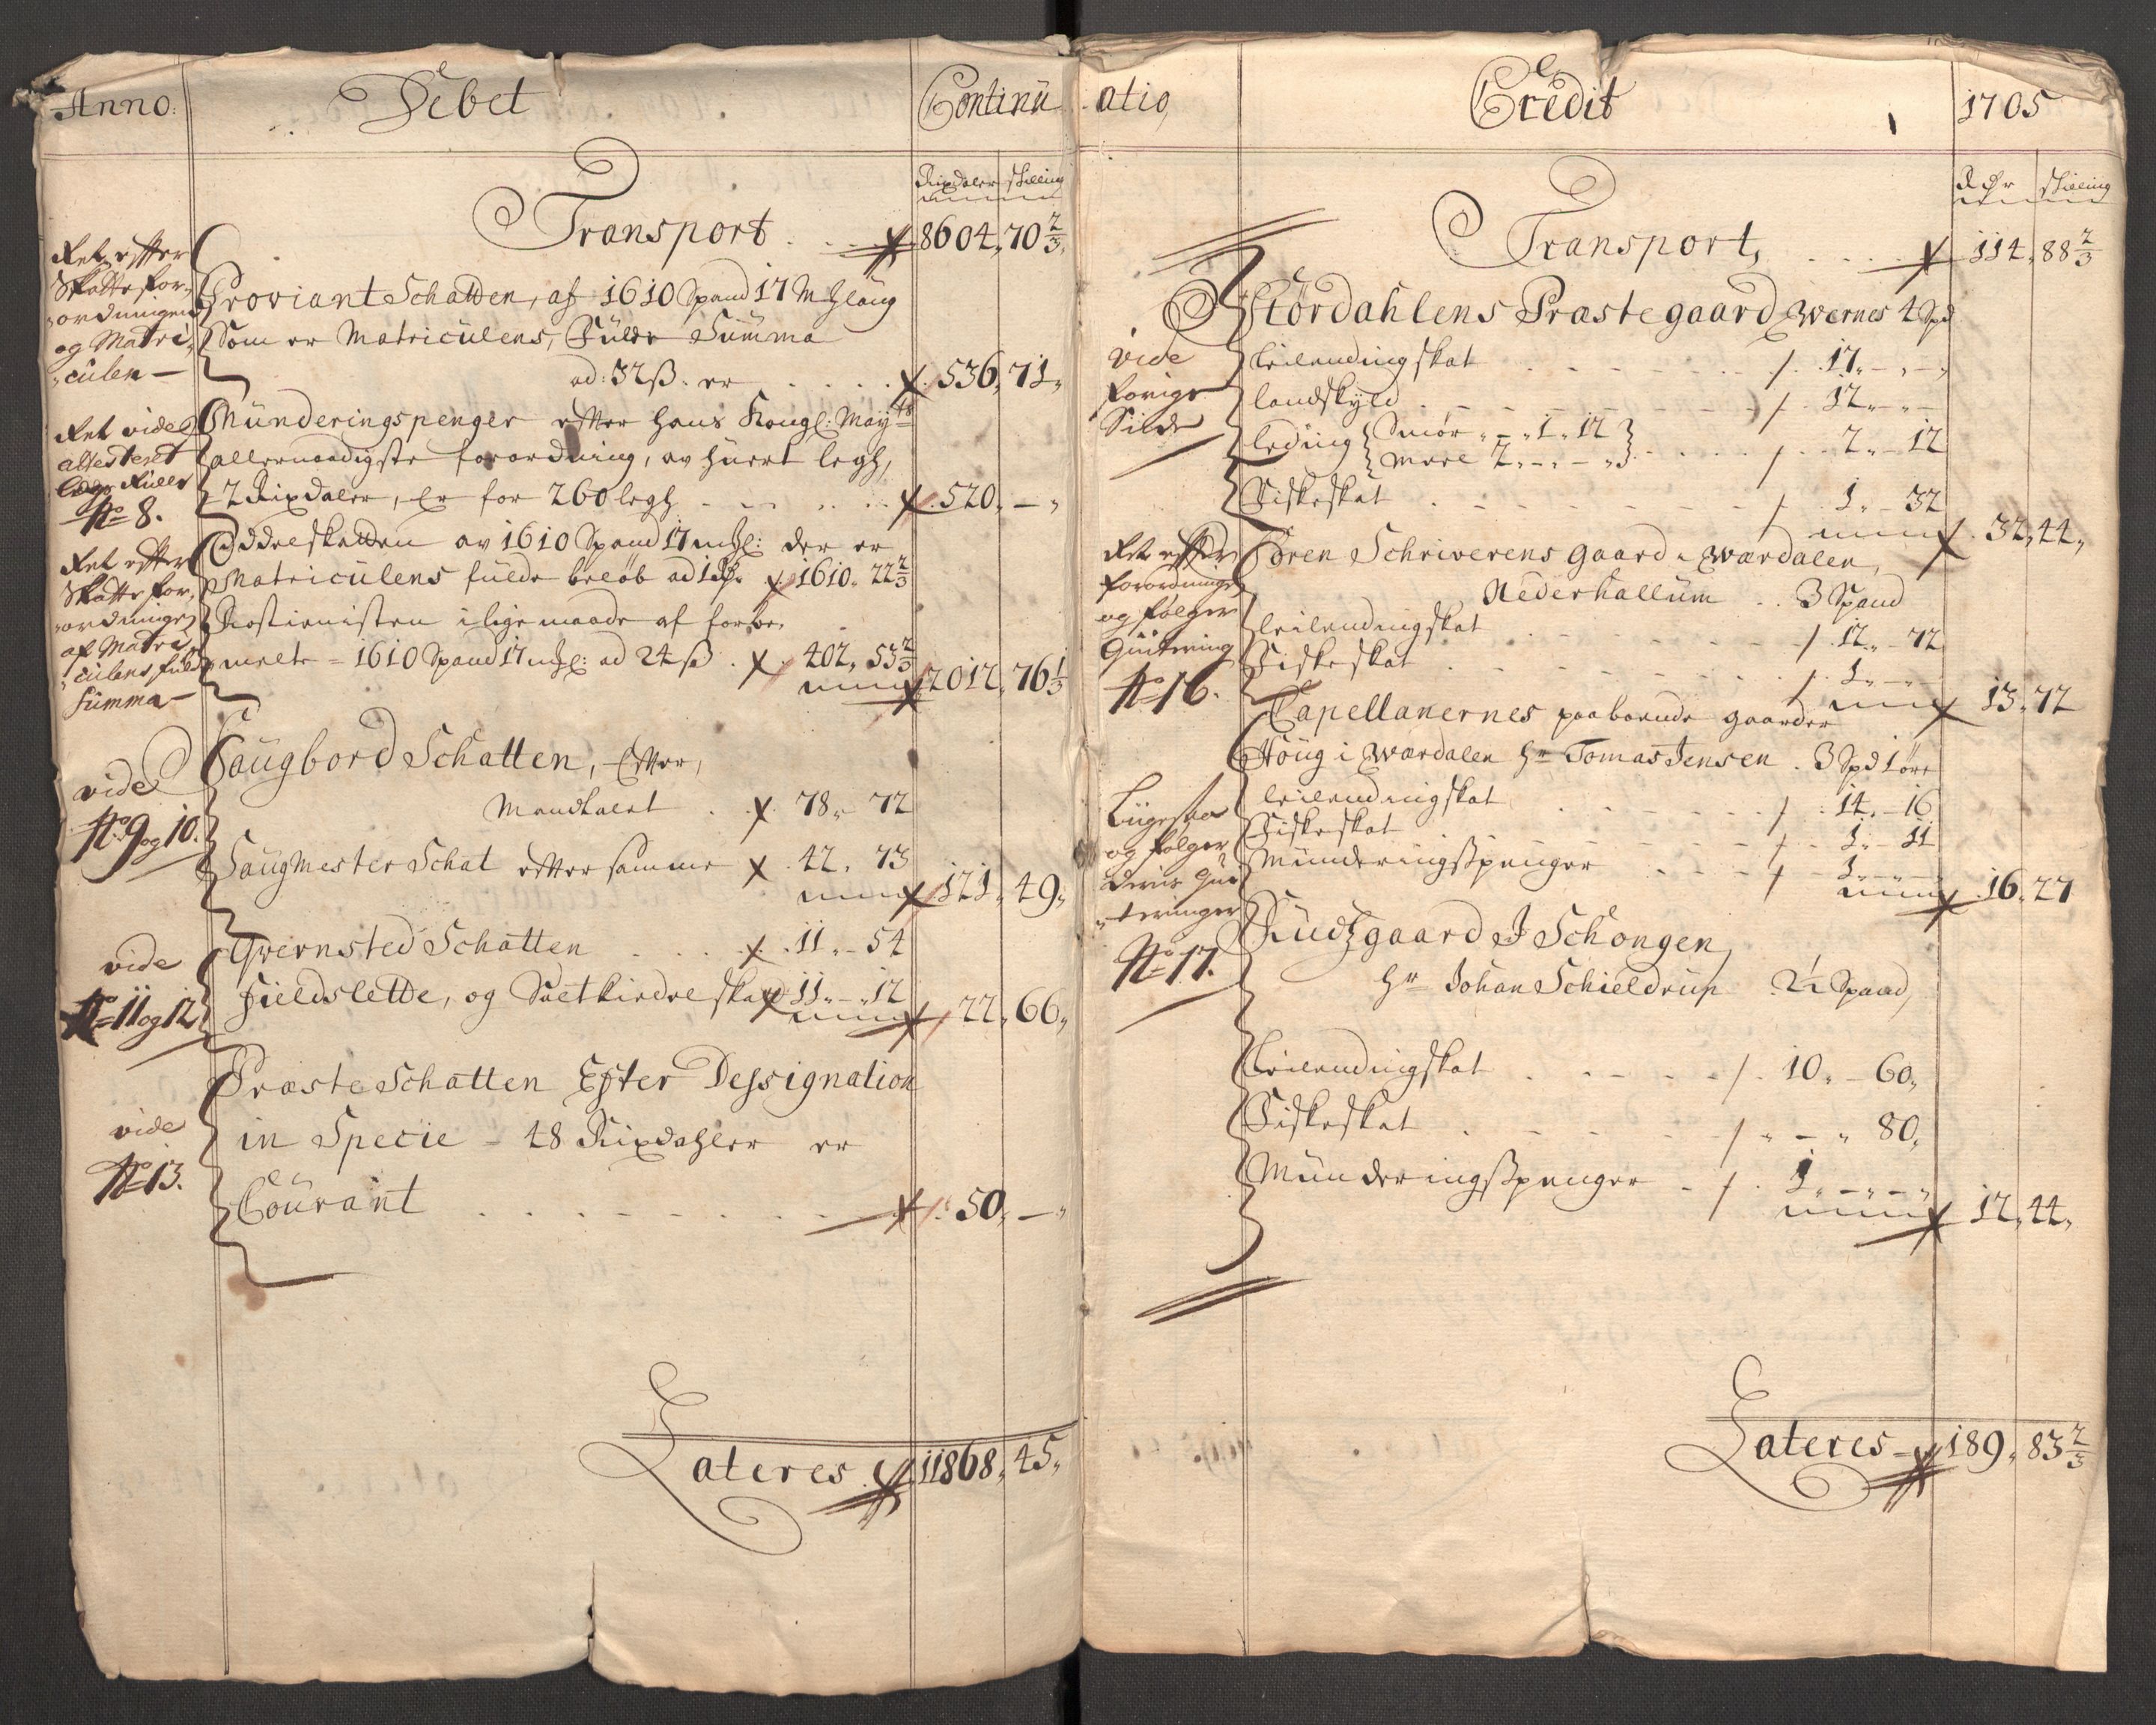 Anno:
Debet
Continu
Rixdaler skilling
Transport 8604, 70 2/3
Ret effter
Skatte for,,
,,ordningen
og Matri,,
,,culen —
Proviant Schatten, af 1610 Spand 17 Mk laug
Som er Matriculens, Fulde Summa
ad: 32 ß: er 536, 71,
Ret vide
attesteret
legs Rulle
No 8.
Münderingspenger effter Hans Kongl: Maytts
allernaadigste forordning, av huert legh,
2 Rixdaler, Er for 260 legh 520, —
Ret effter
Skatte for,,
,,ordningen
af Matri,,
,,culens fulde
Summa —
Oddelskatten av 1610 Spand 17 mkl: der er
Matriculens fulde beløb ad 1 dr 1610, 22 2/3
Rostienisten i lige maade af forbe,,
melte = 1610 Spand 17 mkl: ad 24 ß 402, 53 2/3
2012, 76 1/3
vide
No 9 og 10.
Saugbord Schatten, Effter,
Mandtalet 78, 72
Saugmester Schat effter samme 42, 73
121, 49,
vide
No 11 og 12
Qwernsted Schatten 11, – 54
Fieldslette, og Sæetkirdel skat 11, – 12
22, 66,
vide
No 13.
Præste Schatten Efter Dessignation
in Specie – 48 Rixdahler er
Courant 50, —
Lateres 11868, 45,
atio,
Credit
1705
Rdr skilling
Transport, 114, 88 2/3
vide
forige
Side
Størdahlens Præstegaard Wernes 4 Spd
Leilendingskat 17, – , –
landskyld 12, – , –
leding Smør , – , 1, 12
meel 2, – , – 2, – 12
Fiskeskat 1, – 32
32, 44,
Ret effter
forordningen
og følger
Quitering
No 16.
Soren Schriwerens gaard i Wærdalen,
Nederhallum 3 Spand
Leilendingskat 12, – 72
Fiskeskat 1, – , –
13, 72
Capellanernes paaboende gaarder
Houg i Wærdalen Hr Tomas Jensen 3 Spd 1 øre
Ligesaa
og følger
deris Qui,,
,,teringer
No 17.
Leilendingskat 14, – 16
Fiskeskat 1, – 11
Münderingsspenger 1, – , –
16, 27
Rudtzgaard I Schongen,
Hr Johan Schieldrup 2 1/2 Spand,
Leilendingskat 10, – 60,
Fiskeskat , – , 80,
Münderingsspenger 1, – , –
12, 44,
Lateres 189, 83 2/3